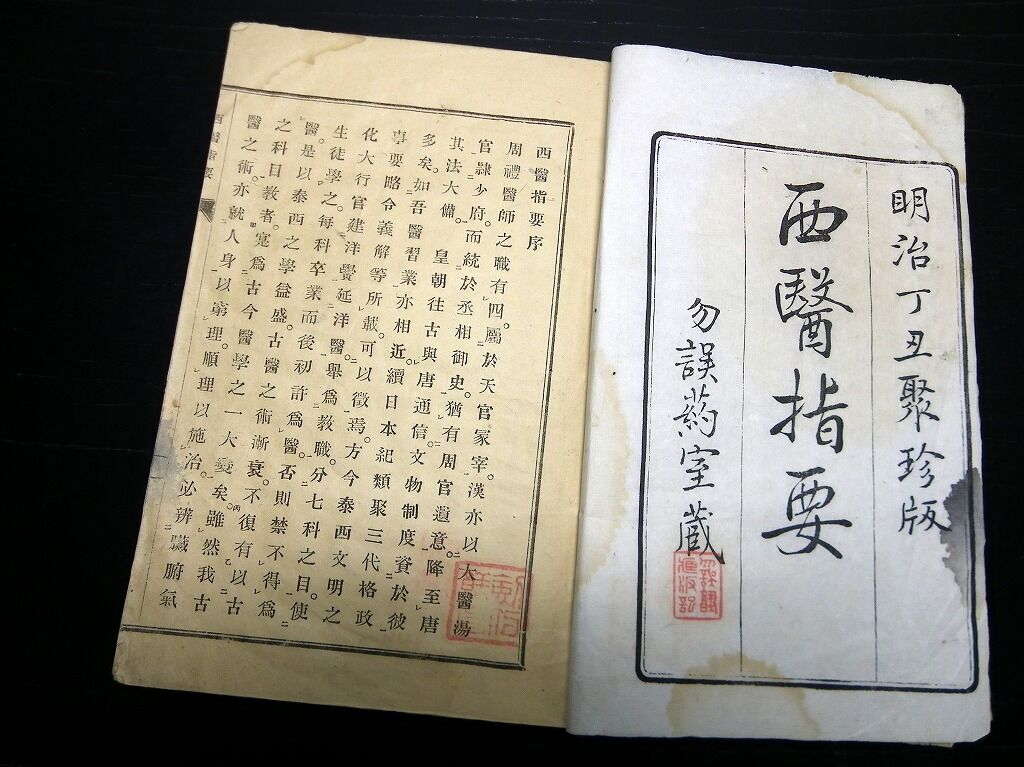 明治丁丑聚珍版
西醫指要
勿誤葯室蔵
西醫指要序
周禮醫師之職有四。屬於天官冢宰。漢亦以大醫湯
官隷少府。而統於丞相御史。猶有周官遺意。降至唐
其法大備。　皇朝往古與唐通信。文物制度資於彼
多矣。如吾醫習業亦相近。續日本紀類聚三代格政
事要略令義解等所載。可以徵焉。方今泰西文明之
化大行官建洋黌延洋醫。舉爲教職。分七科之目。使
生徒學之。每科卒業而後初許爲醫。否則禁不得爲
醫。是以泰西之學益盛。古醫之術漸衰。不復有以古
之科目教者。寔爲古今醫學之一大變矣。雖然我古
醫之術。亦就人身以窮理。順理以施治。必辨臟腑氣
西醫指要